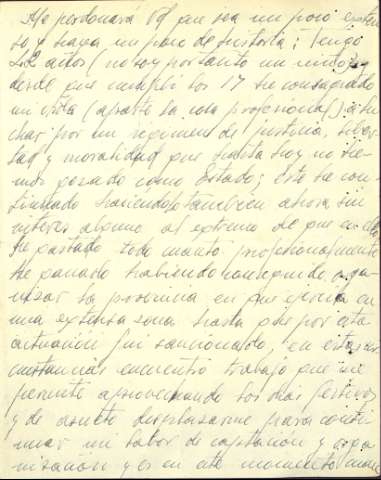 Me perdonará Vd que sea un poco exten
so y haga un poco de historia: Tengo
22 años (no soy por tanto un
desde que cumplí los 17 he consagrado
mi vida (aparte la cosa profesional) a lu
char por un regimen de justicia, liber
tad y moralidad que hasta hoy no he
mos gozado como Estado; Este he con
tinuado haciendo también ahora sin
interes alguno al extremo de que en ello
he gastado todo cuanto profesionalmente
he ganado habiendo conseguido orga
nizar la provincia en que ejercía en
una extensa zona hasta que por esta
actuación fui sancionado, en estas cir
cunstancias encuentro trabajo que me
permite aprovechando los dias festivos
y de asueto desplazarme para conti
nuar mi labor de captación y orga
nización y es en este momento cuando